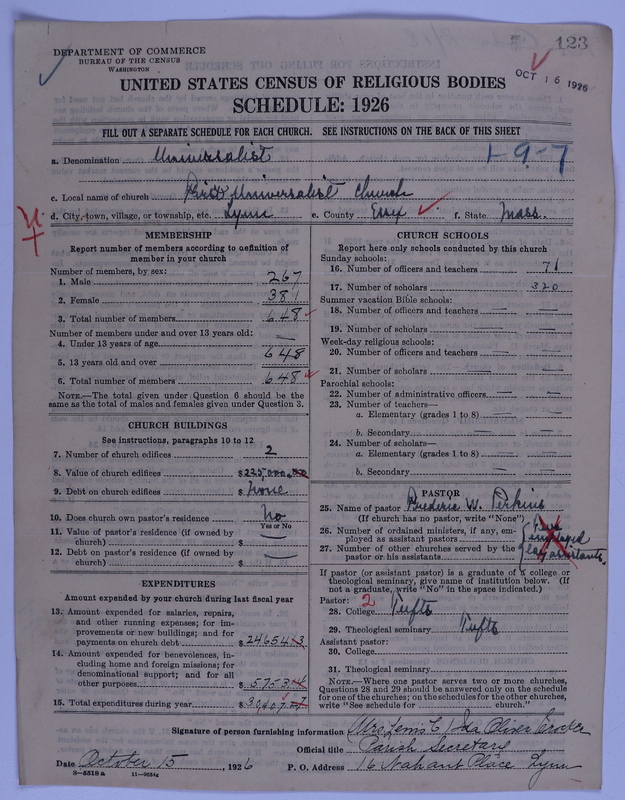 123
DEPARTMENT OF COMMERCE
BUREAU OF THE CENSUS
WASHINGTON
OCT 16 1926
UNITED STATES CENSUS OF RELIGIOUS BODIES
SCHEDULE: 1926
FILL OUT A SEPARATE SCHEDULE FOR EACH CHURCH. SEE INSTRUCTIONS ON THE BACK OF THIS SHEET
a. Denomination Universalist 1-9-7
c. Local name of church First Universalist Church
d. City, town, village, or township, etc. Lynn e. County Essex f. State Mass.
MEMBERSHIP
Report number of members according to definition of
member in your church
Number of members, by sex:
1. Male 267
2. Female 381
3. Total number of members 648
Number of members under and over 13 years old:
4. Under 13 years of age —
5. 13 years old and over 648
6. Total number of members 648
NOTE.—The total given under Question 6 should be the
same as the total of males and females given under Question 3.
CHURCH BUILDINGS
See instructions, paragraphs 10 to 12
7. Number of church edifices 2
8. Value of church edifices $225,000.00
9. Debt on church edifices $ None
10. Does church own pastor's residence No
Yes or No
11. Value of pastor's residence (if owned by
church) —
12. Debt on pastor's residence (if owned by
church) —
EXPENDITURES
Amount expended by your church during last fiscal year
13. Amount expended for salaries, repairs,
and other running expenses; for im-
provements or new buildings; and for
payments on church debt $24654
14. Amount expended for benevolences, in-
cluding home and foreign missions; for
denominational support; and for all
other purposes $5753
15. Total expenditures during year $
CHURCH SCHOOLS
Report here only schools conducted by this church
Sunday schools:
16. Number of officers and teachers 71
17. Number of scholars 320
Summer vacation Bible schools:
18. Number of officers and teachers — —
19. Number of scholars — —
Week-day religious schools:
20. Number of officers and teachers — —
21. Number of scholars — —
Parochial schools:
22. Number of administrative officers — —
23. Number of teachers—
a. Elementary (grades 1 to 8) — —
b. Secondary — —
24. Number of scholars—
a. Elementary (grades 1 to 8) — —
b. Secondary — —
PASTOR
25. Name of pastor Frederic W. Perkins
(If church has no pastor, write "None")
26. Number of ordained ministers, if any, em-
ployed as assistant pastors
27. Number of other churches served by the
pastor or his assistants
employed
lay assistants.
If pastor (or assistant pastor) is a graduate of a college or
theological seminary, give name of institution below. (If
not a graduate, write "No" in the space indicated.)
Pastor: 2
28. College Tufts
29. Theological seminary Tufts
Assistant pastor:
30. College
31. Theological seminary
NOTE.—Where one pastor serves two or more churches,
Questions 28 and 29 should be answered only on the schedule
for one of the churches; on the schedules for the other churches,
write "See schedule for church."
Signature of person furnishing information Mrs. C. Ida Oliver Crocker
Official title Parish Secretary
Date October 15, 1926 P. O. Address 16 Nahant Place Lynn
8—5518 a 11—9054g